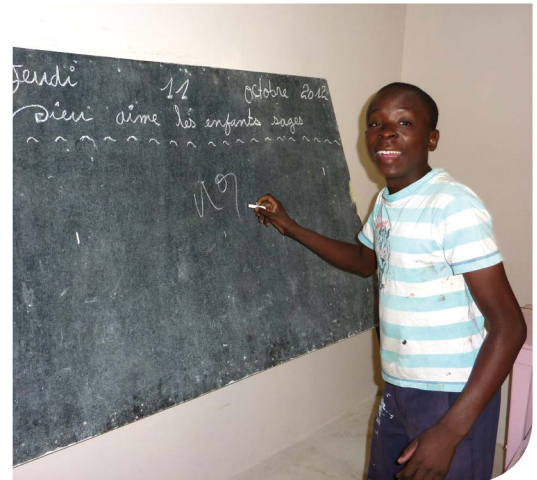 Jeudi 11 Octobre 2012
Dieu aime les enfants sages